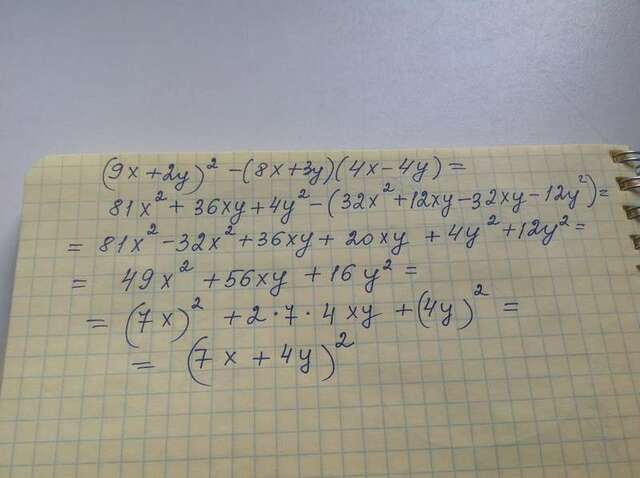 (9x+2y)² -(8x+3y)(4x-4y)=
81x²+36xy+4y²-(32x²+12xy-32xy-12y²)=
= 81x²-32x²+36xy+20xy +4y²+12y²=
= 49x² +56xy +16y²=
= (7x)² +2·7·4xy +(4y)² =
= (7x+4y)²